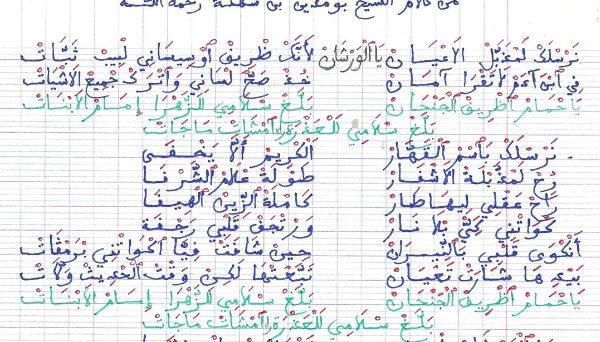 من كلام الشيخ بومدين بن سهلة رحمه الله
نرسلك لمغبّل الاعيان يا الورشان لأنّك طريق أوسيساني لبيت ثبّات
في ابن آدم لا تقرا آمان شد صحّ لساني واترك جميع الاشيات
يا حمام اطريق الجنحان بلّغ سلامي للزّهرا إمسام الابنات
بلّغ سلامي للعذرة امشات ماجات
نرسلك باسم القهّار الكريم ألّا يخفى
رح لمغبّلة الاشفار طولة علام الشّرفا
راح عقلي ليها طار كاملة الزّين الهيفا
كواتني كيّ بلا نار ورتجف قلبي رجفة
أنكوى قلبي بالنّيران حين شافت فيّا اكواتني برمقات
شارت تعيان نتعتها لكن وقت الحديث ولّات
يا حمام اطريق الجنحان بلّغ سلامي للزّهرا إمسام الابنات
بلّغ سلامي للعذرة امشات ماجات